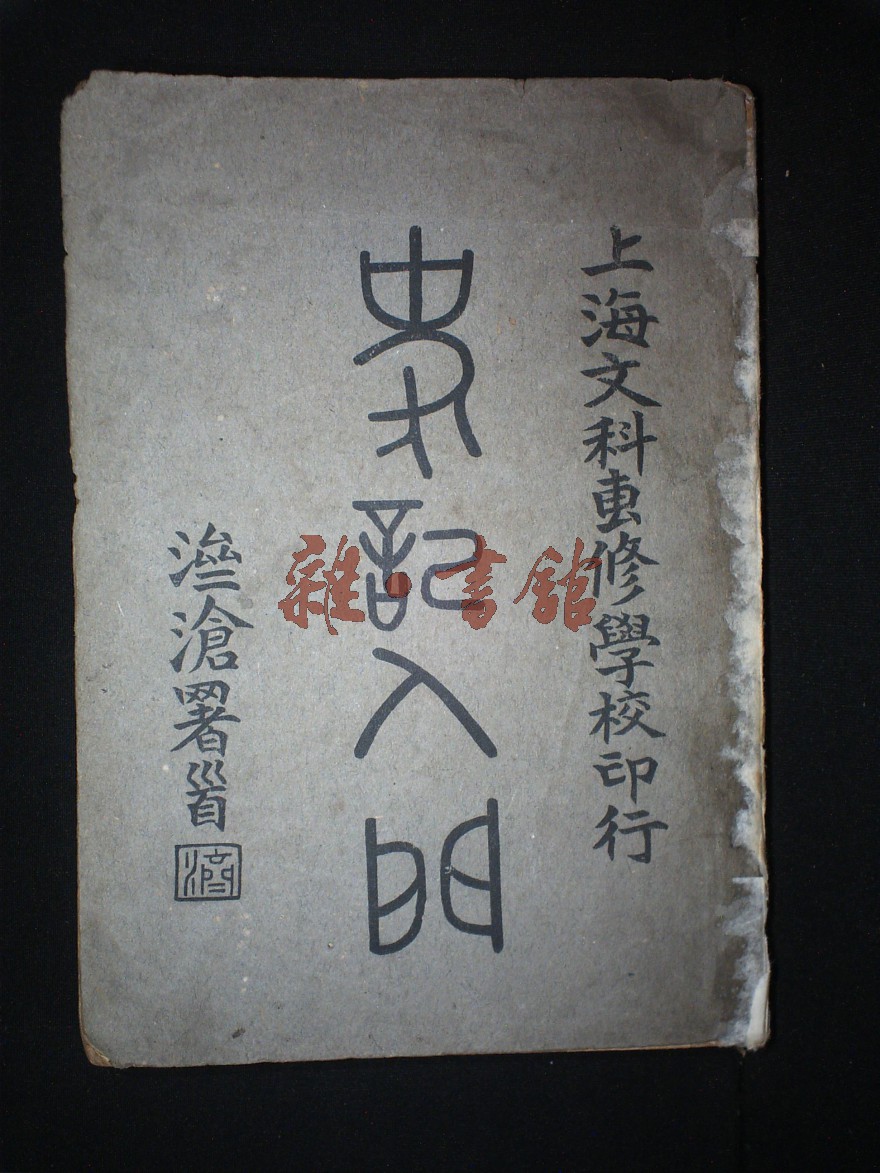 上海文科叀修學校印行
史記入門
滄署𩠐
雜·書館